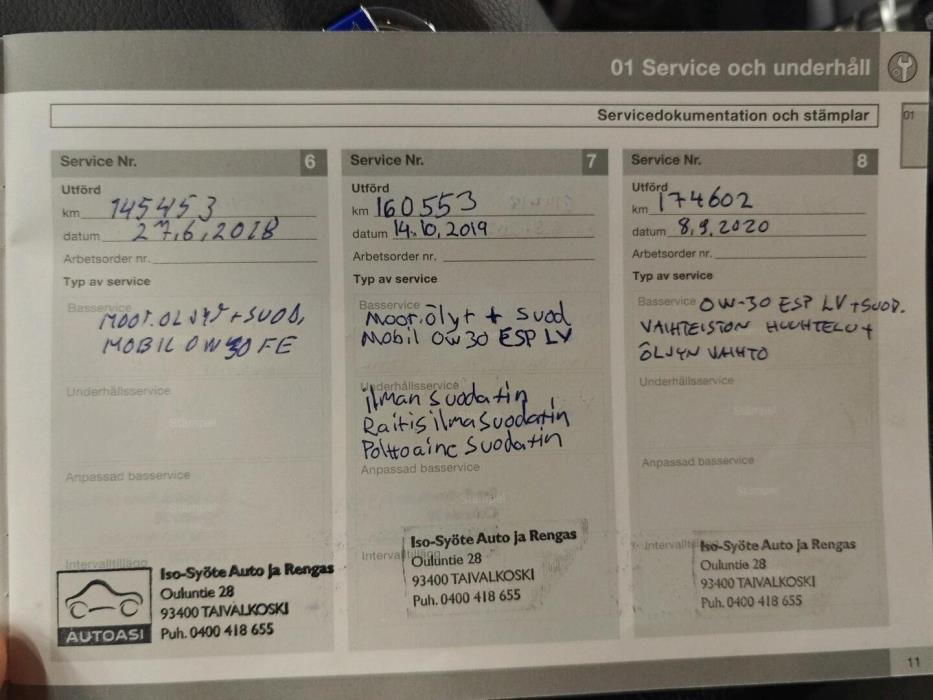 01 Service och underhåll
Servicedokumentation och stämplar
01
Service Nr. 6
Utförd
km 145453
datum 27.6.2018
Arbetsorder nr.
Typ av service
Basservice
MOOT.ÖLJYT + SUOD,
MOBIL 0W30 FE
Underhållsservice
Stämpel
Anpassad basservice
Stämpel
Intervalltillägg
AUTOASI
Iso-Syöte Auto ja Rengas
Ouluntie 28
93400 TAIVALKOSKI
Puh. 0400 418 655
Service Nr. 7
Utförd
km 160553
datum 14.10.2019
Arbetsorder nr.
Typ av service
Basservice
Moot.ölyt + suod
Mobil 0w30 ESP LV
Underhållsservice
ilman suodatin
Raitis ilmasuodatin
Polttoaine suodatin
Anpassad basservice
Iso-Syöte Auto ja Rengas
Ouluntie 28
93400 TAIVALKOSKI
Puh. 0400 418 655
Service Nr. 8
Utförd
km 174602
datum 8.9.2020
Arbetsorder nr.
Typ av service
Basservice 0W-30 ESP LV + SUOD.
VAIHTEISTON HUUHTELU +
ÖLJYN VAIHTO
Underhållsservice
Stämpel
Anpassad basservice
Stämpel
Iso-Syöte Auto ja Rengas
Ouluntie 28
93400 TAIVALKOSKI
Puh. 0400 418 655
11